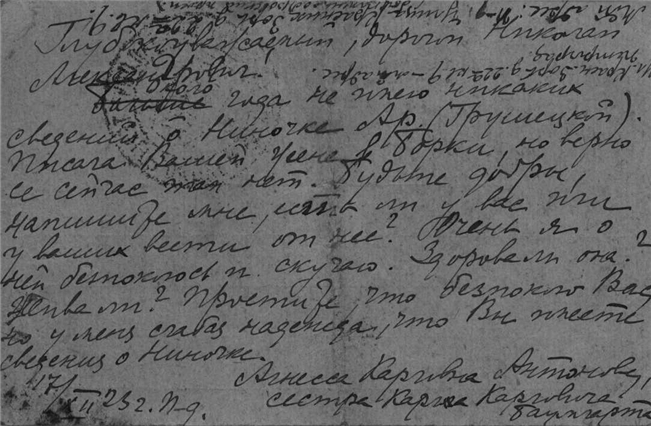 Глубокоуважаемый, дорогой Николай
Александрович.
около года не имею никаких
сведений о Ниночке Ар. (Грушецкой).
Писала Вашей жене в Борки, но верно
ее сейчас там нет. Будьте добры,
напишите мне, есть ли у вас или
у ваших вести от нее? Очень я о
ней беспокоюсь и скучаю. Здорова ли она?
Жива ли? Простите, что беспокою Вас,
но у меня слабая надежда, что Вы имеете
сведения о Ниночке.
Агнесса Карловна Антонову,
17/XII 23 г. П-д.
сестра Карла Карловича
Баумгарта